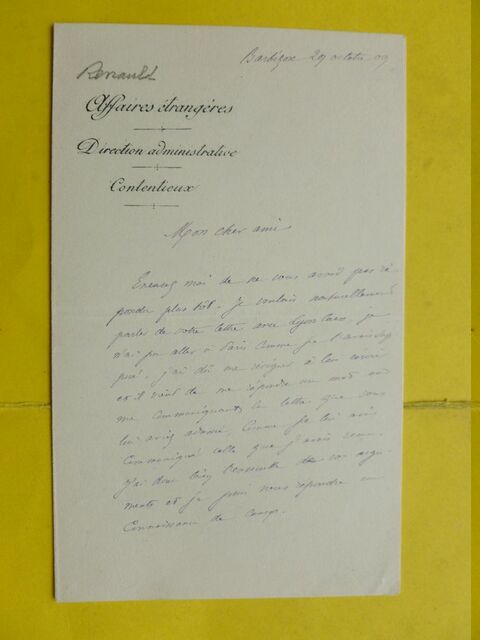 Barbizon 29 octobre 09
Renault
Affaires étrangères
Direction administrative
Contentieux
Mon cher ami
Excusez moi de ne vous avoir pas ré
pondu plus tôt. Je voulais naturellement
parler de votre lettre avec Lyoncaen je
n'ai pu aller à Paris comme je l'avais sup
posé. J'ai dû me résigner à lui écrire
et il vient de me répondre un mot en
me communiquant la lettre que vous
lui aviez adressé, comme je lui avais
communiqué celle que j'avais reçue.
J'ai donc bien l'ensemble de vos argu
ments et je puis vous répondre en
connaissance de cause.